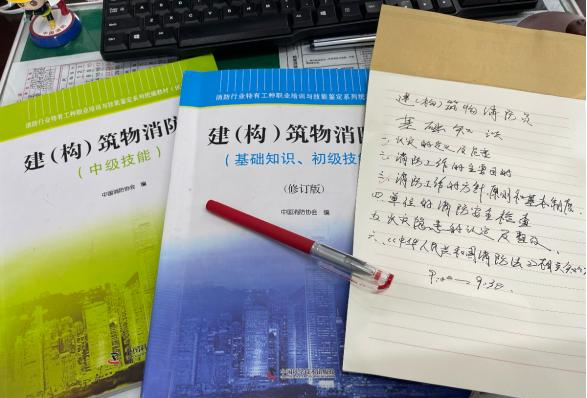 消防行业特有工种职业培训与技能鉴定系列统编教材
建(构)筑物消防
(中级技能)
中国消防协会 编
消防行业特有工种职业培训与技能鉴定系列统
建(构)筑物消防
(基础知识、初级技
(修订版)
中国消防协会 编
建(构)筑物消防员
基础知识
一、火灾的定义及危害
二、消防工作的主要目的
三、消防工作的方针、原则和基本制度.
四、单位的消防安全检查
五、火灾隐患的认定及整改、
六、《中华人民共和国消防法》